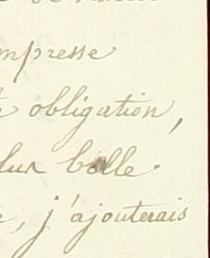 mpresse
obligation,
lus belle.
, j'ajouterais